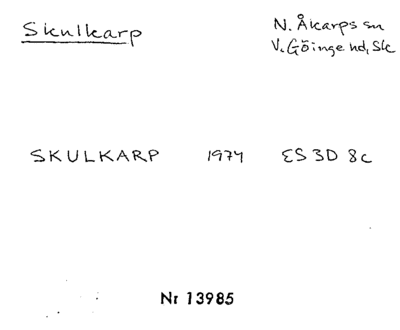 Skulkarp
N. Åkarps sn
V. Göinge hd, Sk
SKULKARP 1974 ES 3D 8c
Nr 13985